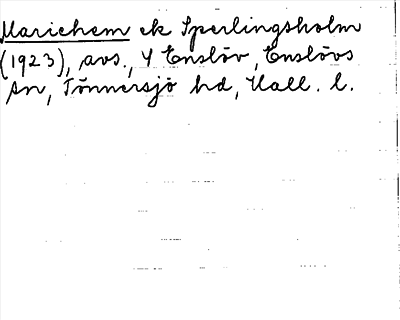 Mariehem ek Sperlingsholm
(1923), avs., Y Enslöv, Enslövs
sn, Tönnersjö hd, Hall. l.